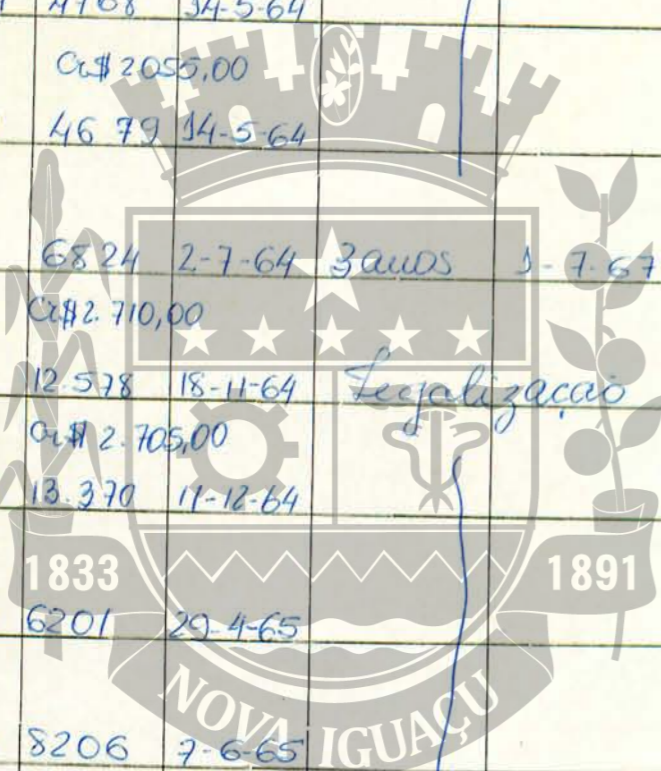 4768 14-5-64
Cr$ 2055,00
4679 14-5-64
6824 2-7-64 3 anos 1-7-67
Cr$ 2.710,00
12.578 18-11-64 Legalização
Cr$ 2.705,00
13.370 11-12-64
1833 1891
6201 29-4-65
NOVA IGUAÇU
8206 7-6-65